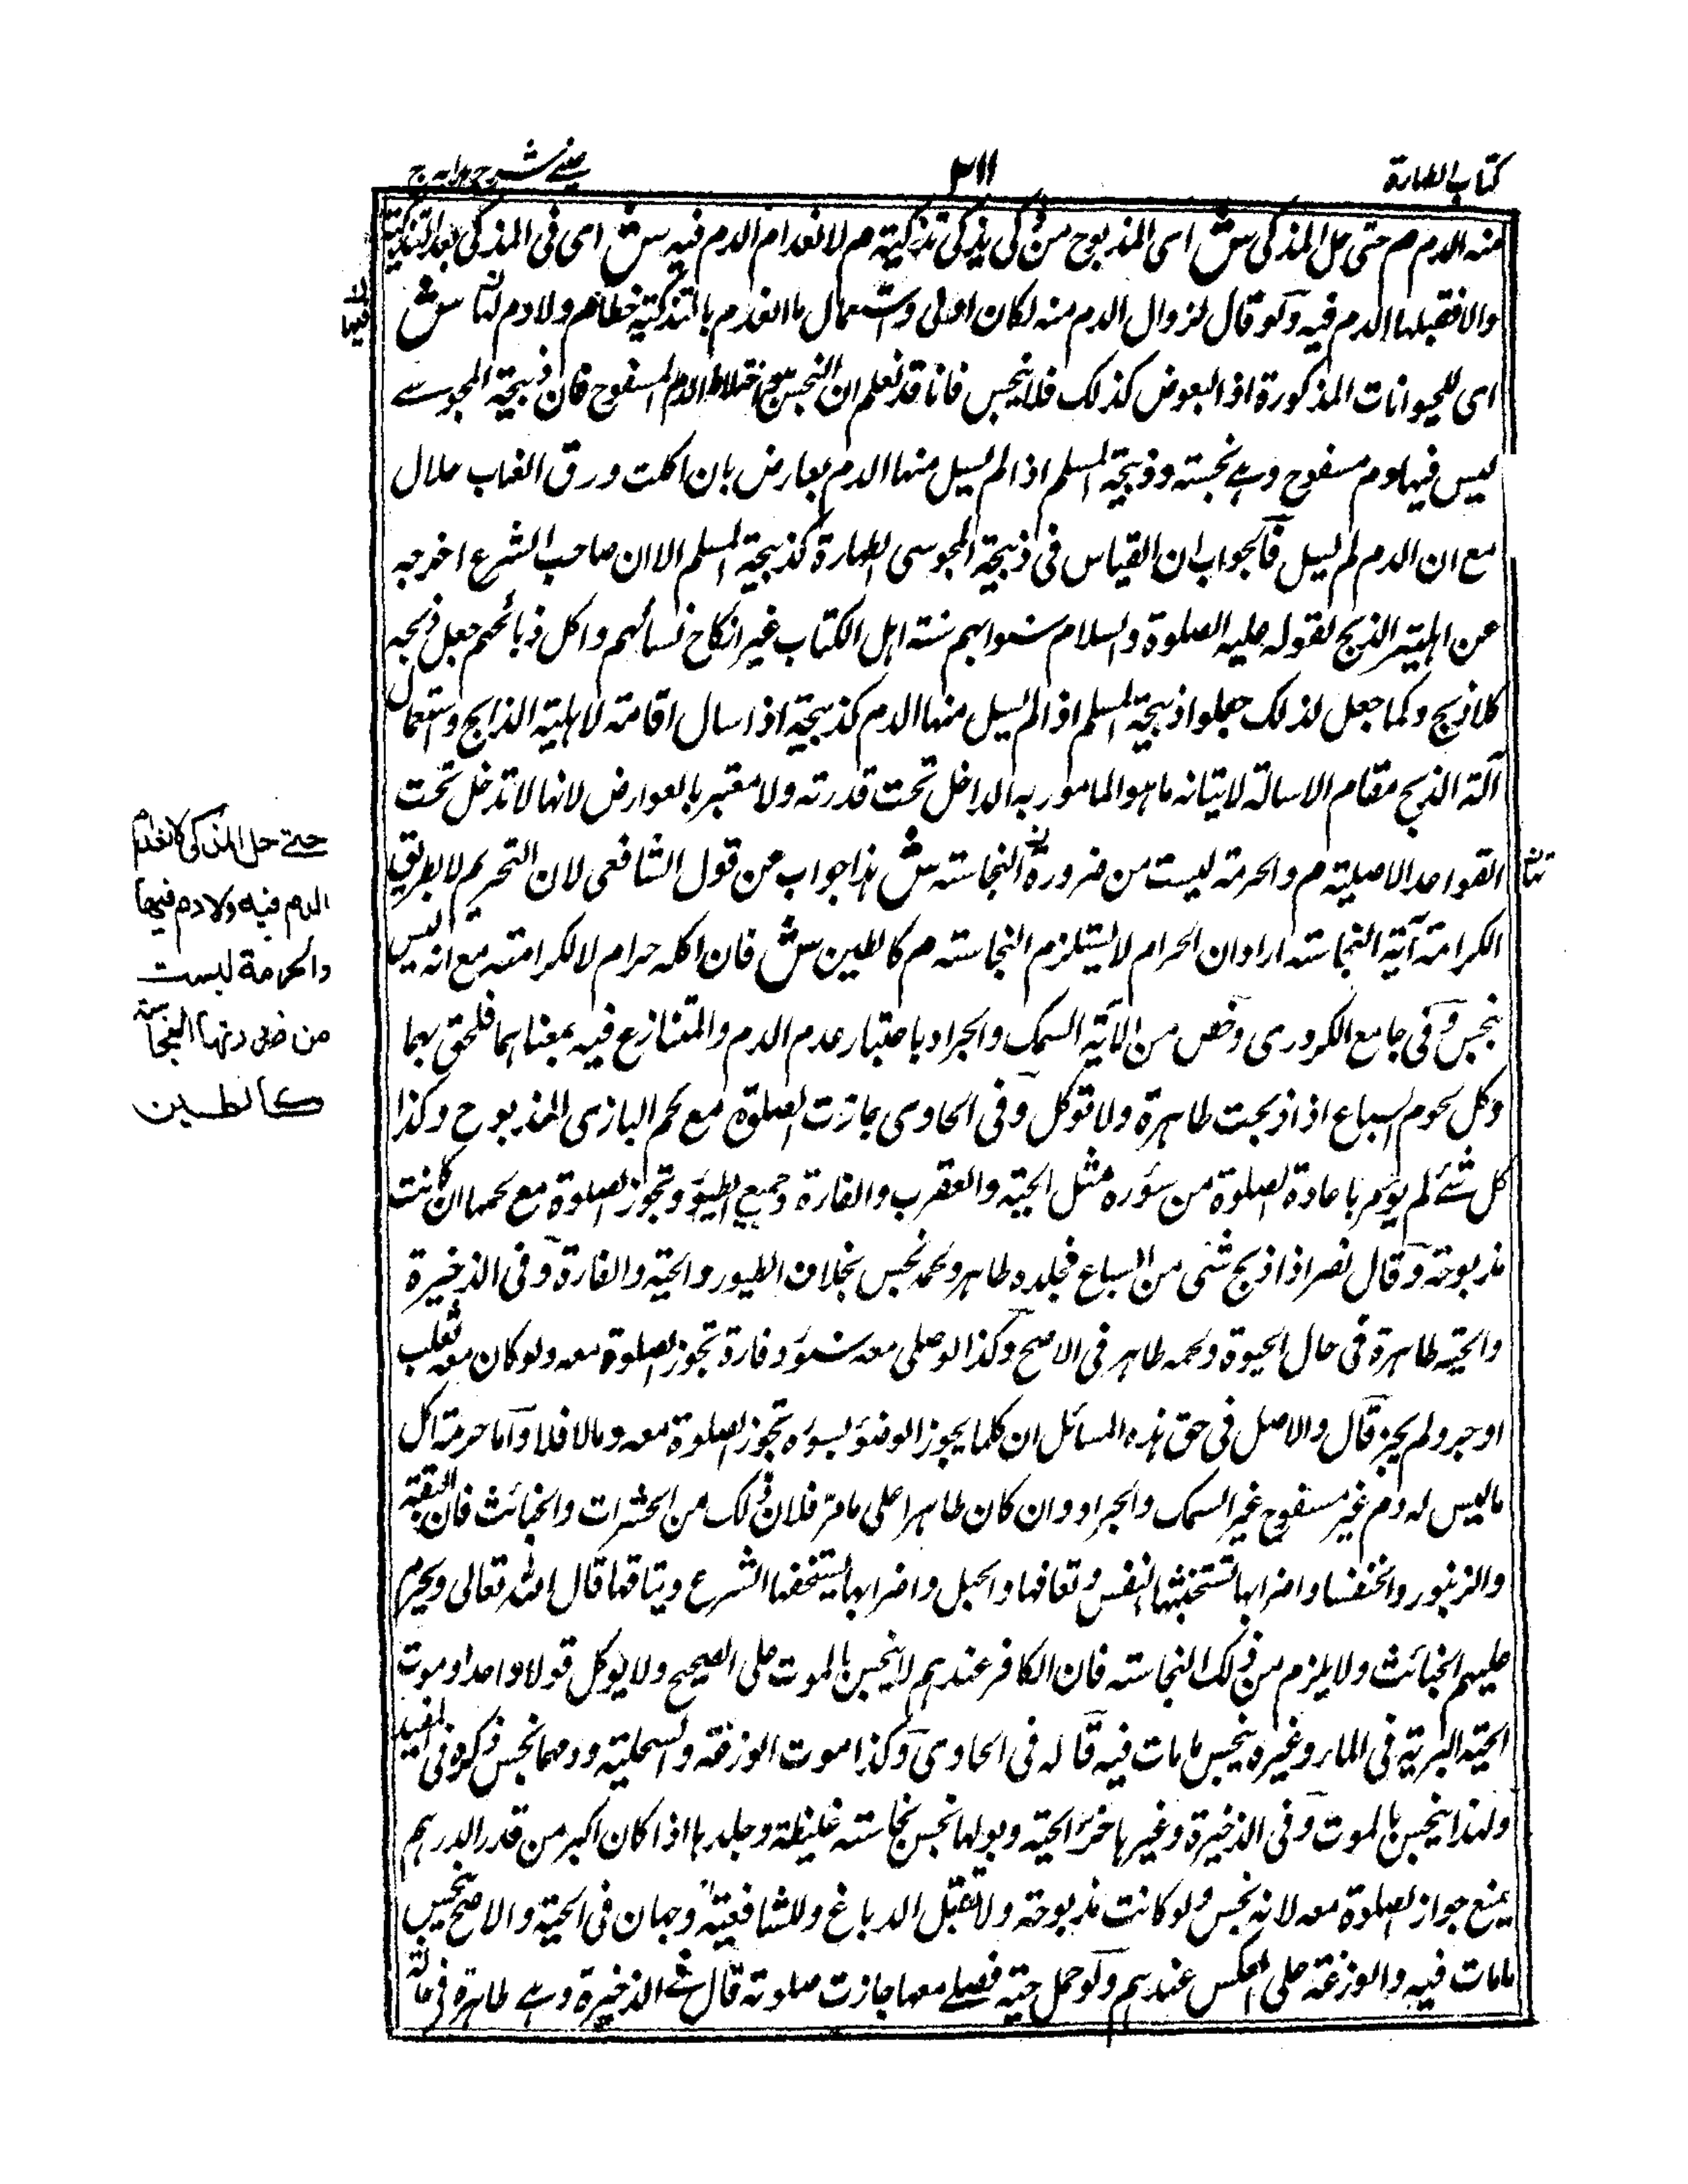 كتاب الطهارة
٢١١
عيني شرح هدايه ج
منه الدم م حتى حل المذكى ش اى المذبوح من ذكى يذكى تذكية م لانعدام الدم فيه ش اى فى المذكى بعد التذكية
والا فقبلها الدم فيه ولو قال لزوال الدم منه لكان اولى واستعمال ما انعدم بالتذكية خطا م ولا دم فيها ش
اى للحيوانات المذكورة اذ البعوض كذلك فلا ينجس فانا قد نعلم ان النجس هو اختلاط الدم المسفوح فان ذبيحة المجوسے
ليس فيها دم مسفوح وہے نجسته وذبيحة المسلم اذا لم يسل منها الدم يعارض بان اكلت ورق العناب حلال
مع ان الدم لم يسل فالجواب ان القياس فى ذبيحة المجوسى الطهارة كذبيحة المسلم الا ان صاحب الشرع اخرجه
عن اهلية الذبح لقوله عليه الصلوة والسلام سنوا بهم سنة اهل الكتاب غير انكاح نسائهم واكل ذبائحهم جعل ذبحه
كلا ذبح وكما جعل لذلك جعلوا ذبيحة المسلم اذا لم يسل منها الدم كذبيحة اذا سال اقامة لاهلية الذابح واستعمال
آلة الذبح مقام الاسالة لاتيانه ما هو المامور به الداخل تحت قدرته ولا معتبر بالعوارض لانها لا تدخل تحت
القواعد الاصلية م والحرمة ليست من ضرورة النجاسته ش هذا جواب عن قول الشافعى لان التحريم لا بطريق
الكرامة آية النجاسته اراد ان الحرام لا يستلزم النجاسته م كالطين ش فان اكله حرام لا لكرامته مع انه ليس
بنجس وفى جامع الكرورى وخص من الآية السمك والجراد باعتبار عدم الدم والمتنازع فيه بمعناهما فلحق بهما
وكل لحوم السباع اذا ذبحت طاهرة ولا توكل وفى الحاوى جازت الصلوة مع لحم البازى المذبوح وكذا
كل شئے لم يؤمر باعادة الصلوة من سؤره مثل الحية والعقرب والفارة وجميع الطيور وتجوز الصلوة مع لحمها ان كانت
مذبوحة وقال نصر اذا ذبح شئ من السباع فجلده طاهر ولحمه نجس بخلاف الطيور والحية والفارة وفى الذخيرة
والحية طاهرة فى حال الحيوة ولحمه طاهر فى الاصح وكذا لو صلى معه سنور وفارة تجوز الصلوة معه ولو كان معه ثعلب
او جرو لم يجز قال والاصل فى حق هذه المسائل ان كلما يجوز الوضوء بسؤره تجوز الصلوة معه وما لا فلا واما حرمة اكل
ما ليس له دم غير مسفوح غير السمك والجراد وان كان طاهرا على ما مر فلان ذلك من الحشرات والخبائث فان البقة
والزنبور والخنفسا واضرابها تستخبثها النفس وتعافها والجبل واضرابها يستخفها الشرع ويتاقها قال الله تعالى ويحرم
عليهم الخبائث ولا يلزم من ذلك النجاسته فان الكافر عندهم لا ينجس بالموت على الصحيح ولا يوكل قولا واحدا وموت
الحية البرية فى الماء وغيره ينجس ما مات فيه قاله فى الحاوى وكذا موت الوزغة والسحلية ودمهما نجس ذكره فى المفيد
ولهذا ينجس بالموت وفى الذخيرة وغيرها خرؤ الحية وبولها نجس نجاسته غليظة وجلدها اذا كان اكبر من قدر الدرهم
يمنع جواز الصلوة معه لانه نجس ولو كانت مذبوحة ولا تقبل الدباغ وللشافعية وجهان فى الحية والاصح ينجس
ما مات فيه والوزغة على العكس عندهم ولو حمل حية فصلے معها جازت صلوته قال فے الذخيرة وہے طاهرة فى حالة
لا
فيها
حتے حل المذكى لانعدام
الدم فيه ولا دم فيها
والحرمة ليست
من ضرورتها النجاسة
كالطين